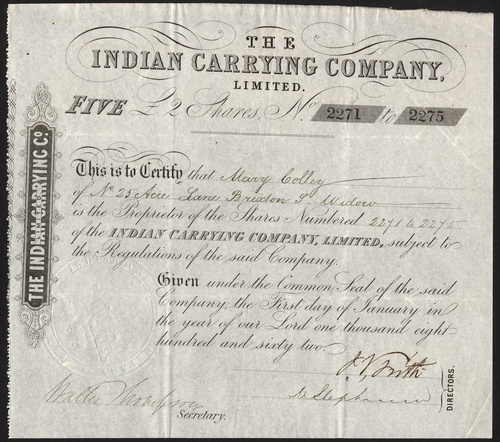 THE
INDIAN CARRYING COMPANY,
LIMITED.
FIVE £2 Shares, No. 2271 to 2275
This is to Certify, that Mary Colley
of No 25 Acre Lane Brixton S. Widow
is the Proprietor of the Shares Numbered 2271 to 2275
of the INDIAN CARRYING COMPANY, LIMITED, subject to
the Regulations of the said Company.
Given under the Common Seal of the said
Company, the First day of January in
the year of our Lord one thousand eight
hundred and sixty two.
Walter Thompson
Secretary.
DIRECTORS.
THE INDIAN CARRYING Co.